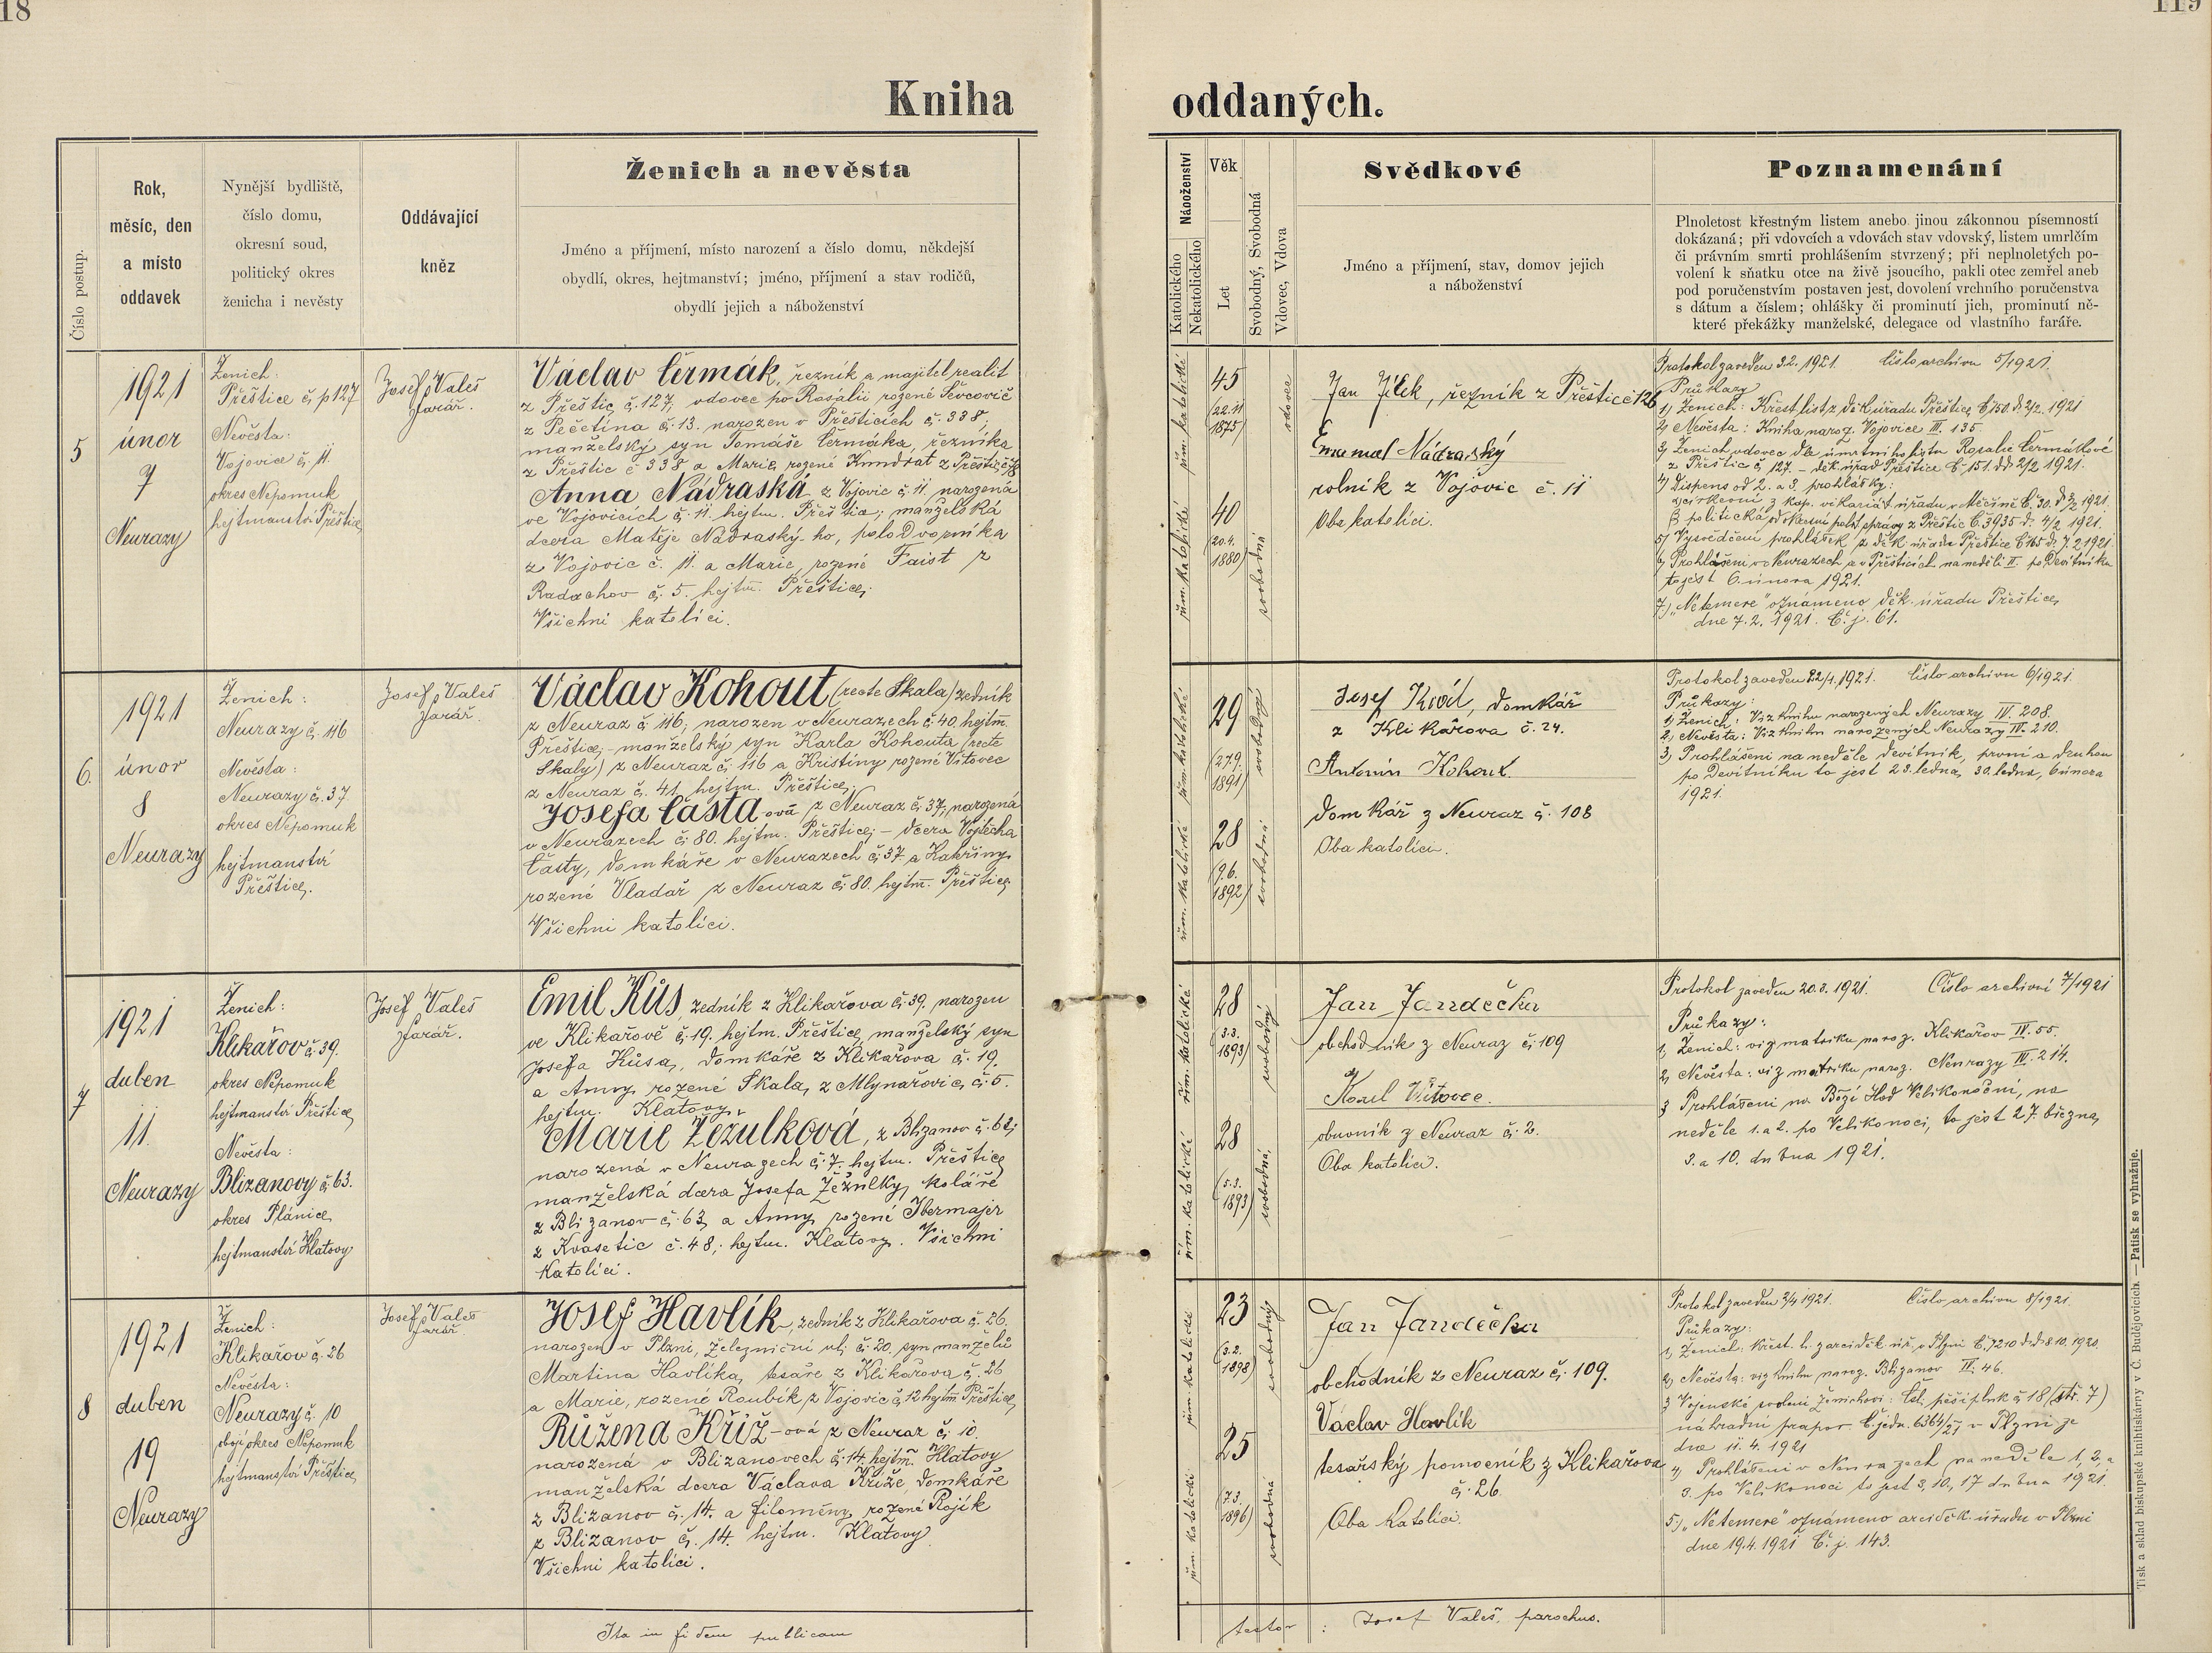 18
119
Kniha
oddaných.
Číslo postup.
Rok,
měsíc, den
a místo
oddavek
Nynější bydliště,
číslo domu,
okresní soud,
politický okres
ženicha i nevěsty
Oddávající
kněz
Ženich a nevěsta
Jméno a příjmení, místo narození a číslo domu, někdejší
obydlí, okres, hejtmanství; jméno, příjmení a stav rodičů,
obydlí jejich a náboženství
Náboženství
Katolického
Nekatolického
Věk
Let
Svobodný, Svobodná
Vdovec, Vdova
Svědkové
Jméno a příjmení, stav, domov jejich
a náboženství
Poznamenání
Plnoletost křestným listem anebo jinou zákonnou písemností
dokázaná; při vdovcích a vdovách stav vdovský, listem umrlčím
či právním smrti prohlášením stvrzený; při neplnoletých po-
volení k sňatku otce na živě jsoucího, pakli otec zemřel aneb
pod poručenstvím postaven jest, dovolení vrchního poručenstva
s dátum a číslem; ohlášky či prominutí jich, prominutí ně-
které překážky manželské, delegace od vlastního faráře.
5
1921
únor
7
Neurazy
Ženich:
Přeštice č. p 127
Nevěsta:
Vojovice č. 11.
okres Nepomuk
hejtmanství Přeštice
Josef Valeš
farář.
Václav Čermák, řezník a majitel realit
z Přeštic č. 127, vdovec po Rosalii rozené
z Pečetína č. 13. narozen v Přešticích č. 338,
manželský syn Tomáše Čermáka, řezníka
z Přeštic č 338 a Marie rozené Kundrát z Přeštic
Anna Nádraská z Vojovic č. 11. narozená
ve Vojovicích č. 11. hejtm. Přeštice; manželská
dcera Matěje Nádraský-ho, polodvorníka
z Vojovic č. 11. a Marie, rozené Faist z
Radochov č. 5. hejtm. Přeštice.
Všichni katolíci.
řím. katolické
45
(22.11
1875)
vdovec
řím. katolické
40
20.4.
1880)
svobodná
Jan Jílek, řezník z Přeštic č 126
Emanuel Nádraský
rolník z Vojovic č. 11
Oba katolíci.
Protokol zaveden 3.2. 1921. Číslo archivu 5/1921.
Průkazy
1) Ženich: Křest. list z děk. úřadu Přeštice Č 150 d. 2/2. 1921
2) Nevěsta: Kniha naroz. Vojovice III. 135.
3) Ženich vdovec dle úmrtního listu Rosalie Čermákové
z Přeštic č. 127. – děk. úřad Přeštice Č. 151. dd 2/2 1921.
4) Dispens od 2. a 3. prohlášky:
církevní z kap. vikariát. úřadu v Měčíně Č. 30. d. 3/2 1921.
β politická od okresní polit. správy z Přeštic Č. 3935 d. 4/2 1921.
5) Vysvědčení prohlášek z děk. úřadu Přeštice Č 165 d. 7. 2 1921
6) Prohlášení v Neurazech a v Přešticích na neděli II. po Devítníku
to jest 6. února 1921.
7.) „Netemere“ oznámeno děk. úřadu Přeštice
dne 7. 2. 1921. Č. j. 61.
6.
1921
únor
8
Neurazy
Ženich:
Neurazy č. 116
Nevěsta:
Neurazy č. 37
okres Nepomuk
hejtmanství
Přeštice.
Josef Valeš
farář.
Václav Kohout (recte Skala) zedník
z Neuraz č. 116; narozen v Neurazech č. 40, hejtm.
Přeštice; – manželský syn Karla Kohouta (recte
Skaly) z Neuraz č. 116 a Kristiny rozené Vítovec
z Neuraz č. 41, hejtm. Přeštice;
Josefa Častá-ová z Neuraz č. 37; narozená
v Neurazech č. 80. hejtm. Přeštice; – dcera Vojtěcha
Časty, domkáře v Neurazech č. 37 a Kateřiny
rozené Vladař z Neuraz č. 80. hejtm. Přeštice
Všichni katolíci.
řím. katolické
29
(27.9.
1891)
svobodný
řím. katolické
28
(9.6.
1892)
svobodná
Josef Kroil, domkář
z Klikařova č. 24.
Antonín Kohout.
domkář z Neuraz č. 108
Oba katolíci.
Protokol zaveden 22/1. 1921. Číslo archivu 6/1921
Průkazy:
1) Ženich: Viz knihu narozených Neurazy IV. 208.
2) Nevěsta: Viz knihu narozených Neurazy IV. 210.
3) Prohlášení na neděle devítník, první a druhou
po Devítníku to jest 23. ledna, 30. ledna, 6 února
1921.
7
1921
duben
11.
Neurazy
Ženich:
Klikařov č. 39.
okres Nepomuk
hejtmanství Přeštice
Nevěsta:
Blizanovy č. 63.
okres Plánice
hejtmanství Klatovy
Josef Valeš
farář.
Emil Kůs, zedník z Klikařova č. 39. narozen
ve Klikařově č. 19. hejtm. Přeštice, manželský syn
Josefa Kůsa, domkáře z Klikařova č. 19.
a Anny, rozené Skala, z Mlynařovic, č. 5.
hejtm. Klatovy.
Marie Žežulková, z Blizanov č. 63;
narozená v Neurazech č. 7. hejtm. Přeštice
manželská dcera Josefa Žežulky, koláře
z Blizanov č. 63, a Anny rozené Ibermajer
z Kvasetic č. 48; hejtm. Klatovy. Všichni
Katolíci.
řím. katolické
28
(3.3.
1893)
svobodný
řím. katolické
28
(5.3.
1893)
svobodná
Jan Jandečka
obchodník z Neuraz č. 109
Karel Vítovec.
obuvník z Neuraz č. 2.
Oba katolíci.
Protokol zaveden 20.3. 1921. Číslo archivní 7/1921
Průkazy:
1, Ženich: viz matriku naroz. Klikařov IV. 55.
2, Nevěsta: viz matriku naroz. Neurazy IV. 214.
3 Prohlášení na Boží Hod Velikonoční, na
neděle 1. a 2. po Velikonoci, to jest 27. března,
3. a 10. dubna 1921.
8
1921
duben
19
Neurazy
Ženich:
Klikařov č. 26
Nevěsta:
Neurazy č. 10
obojí okres Nepomuk
hejtmanství Přeštice
Josef Valeš
farář.
Josef Havlík, zedník z Klikařova č. 26.
narozen v Plzni, Železniční ul. č. 20. syn manželů
Martina Havlíka, tesaře z Klikařova č. 26
a Marie, rozené Roubík z Vojovic č. 12 hejtm Přeštice
Růžena Kříž-ová z Neuraz č. 10.
narozená v Blizanovech č. 14. hejtm. Klatovy
manželská dcera Václava Kříže, domkáře
z Blizanov č. 14. a Filomény, rozené Rojík
z Blizanov č. 14. hejtm. Klatovy
Všichni katolíci.
řím. katolické
23
(3.2.
1898)
svobodný
řím. katolické
25
(7.3.
1896)
svobodná
Jan Jandečka
obchodník z Neuraz č. 109.
Václav Havlík
tesařský pomocník z Klikařova
č. 26.
Oba katolíci.
Protokol zaveden 3/4 1921. Číslo archivu 8/1921.
Průkazy:
1, Ženich: křest. l. z arciděk. úř. v Plzni Č. 7210 d.d. 8 10. 1920.
2, Nevěsta: viz knihu naroz. Blizanov IV. 46.
3 Vojenské svolení ženichovi: Čsl. pěší pluk č 18 (str. 7)
náhradní prapor. Č. jedn. 6364/21 v Plzni ze
dne 11. 4. 1921
4) Prohlášení v Neurazech na neděle 1, 2, a
3. po Velikonoci to jest 3, 10, 17 dubna 1921.
5.) „Netemere“ oznámeno arciděk. úřadu v Plzni
dne 19.4. 1921 Č. j. 143.
Ita in fidem publicam
testor : Josef Valeš, parochus.
Tisk a sklad biskupské knihtiskárny v Č. Budějovicích. — Patisk se vyhražuje.